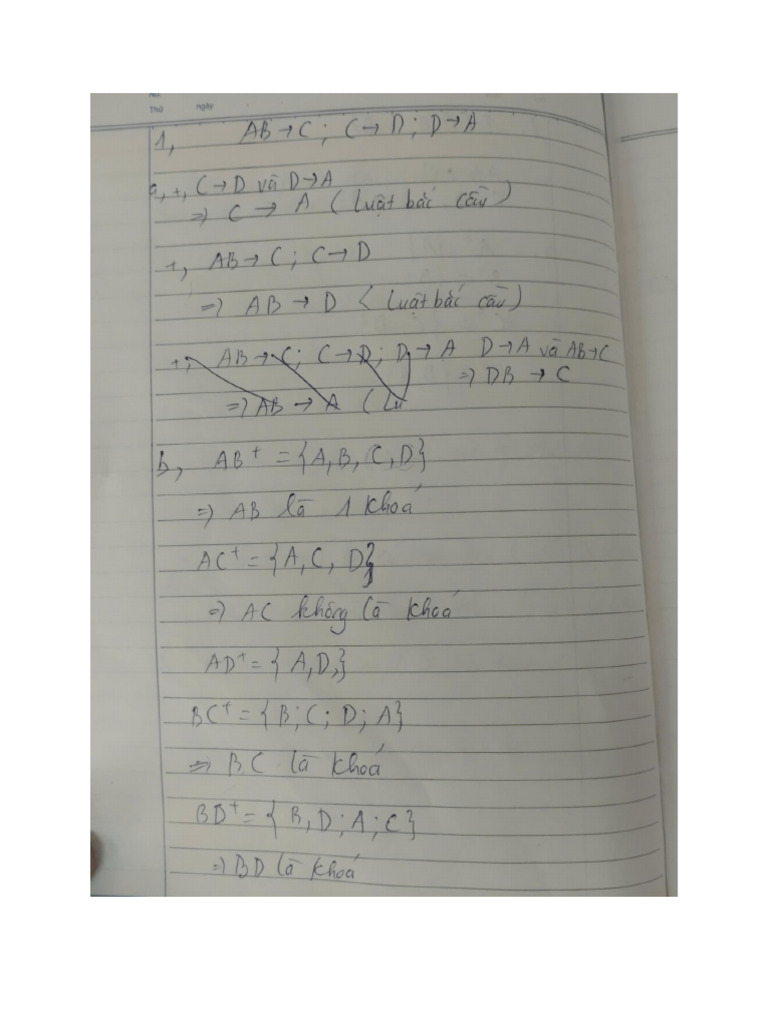 Thứ ngày
1, AB → C ; C → D ; D → A
a, +, C → D và D → A
=> C → A ( luật bắc cầu )
+, AB → C ; C → D
=> AB → D ( luật bắc cầu )
+, AB → C ; C → D ; D → A D → A và AB → C
=> AB → A ( Lu => DB → C
b, AB⁺ = {A, B, C, D}
=> AB là 1 khoá
AC⁺ = {A, C, D}
=> AC không là khoá
AD⁺ = { A, D, }
BC⁺ = {B ; C ; D ; A}
=> BC là khoá
BD⁺ = { B, D ; A ; C }
=> BD là khoá